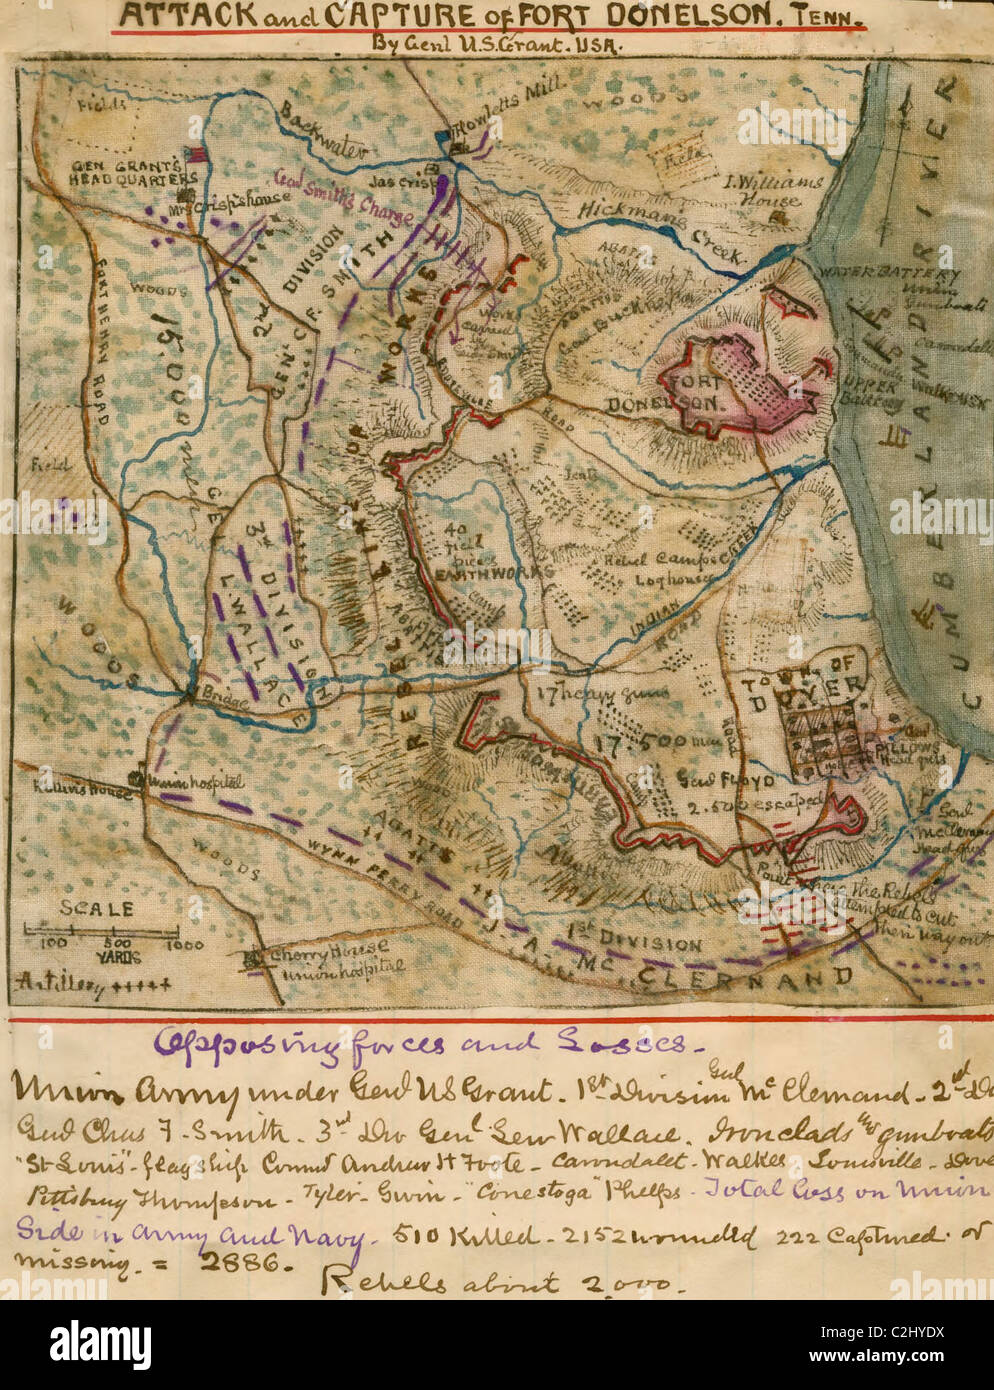 ATTACK and CAPTURE of FORT DONELSON. TENN.
By Genl U.S. Grant. USA.
Fields
Backwater
Howletts Mill.
WOODS
Field
GEN GRANT'S
HEADQUARTERS
Mrs Crisp's house
Jas Crisp
Genl Smith's Charge
I. Williams
House
Hickmans Creek
WOODS
2nd DIVISION
GEN. C.F. SMITH
ABATTIS
Genl Buckner
WATER BATTERY
Union
Gunboats
Carondelet
FORT HENRY ROAD
15.000 men
works
FORT
DONELSON.
UPPER
Battery
Walke USN
CUMBERLAND RIVER
ROAD
Field
GEN
3rd DIVISION
L. WALLACE
LINE OF REBEL WORKS
40
Field
pieces
EARTHWORKS
camp
Rebel Camps
Loghouses
INDIAN CREEK
ROAD
WOODS
Bridge
TOWN OF
DOVER
17 heavy guns
17.500 men
Road
PILLOWS
Headqrts
Genl FLOYD
2.500 escaped
Rollins house
Union hospital
Genl
McClernand
Headqrs
AGATTS
WYNN FERRY ROAD
WOODS
Point where the Rebels
attempted to cut
their way out
SCALE
100 500 1000
YARDS
Artillery +++++
Cherry House
Union hospital
1st DIVISION
J. A. Mc CLERNAND
Opposing forces and Losses-
Union Army under Genl US Grant. 1st Division Genl McClernand - 2nd Do
Genl Chas F. Smith. 3rd Div Genl Lew Wallace. Ironclads and gunboats
"St Louis" - flagship Commr Andrew H Foote - Carondalet - Walker - Louisville - Dove
Pittsburg Thompson - Tyler - Gwin - "Conestoga" Phelps - Total Loss on Union
Side in Army and Navy - 510 Killed - 2152 wounded 222 Captured. or
missing. = 2886.
Rebels about 2,000.
alamy
Image ID: C2HYDX
www.alamy.com